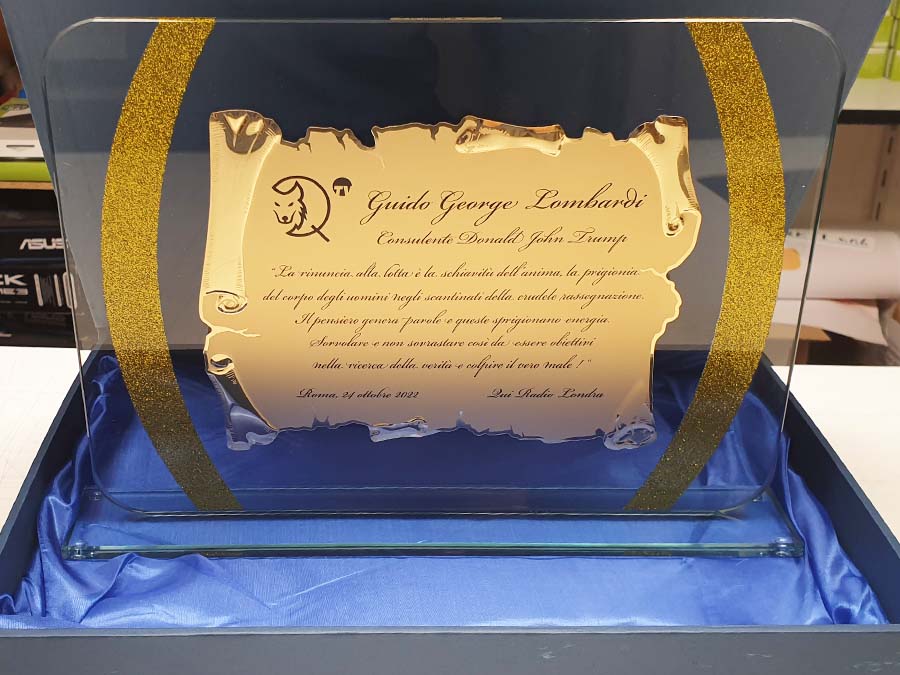 TV
Guido George Lombardi
Consulente Donald John Trump
"La rinuncia alla lotta è la schiavitù dell'anima, la prigionia
del corpo degli uomini negli scantinati della crudele rassegnazione.
Il pensiero genera parole e queste sprigionano energia.
Sorvolare e non sovrastare così da essere obiettivi
nella ricerca della verità e colpire il vero male!"
Roma, 24 ottobre 2022 Qui Radio Londra
ASUS